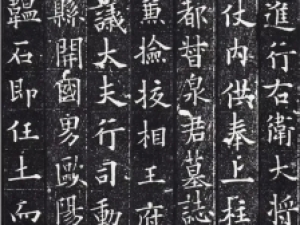 進行右衛大將
仗内供奉上柱
都督泉君墓誌
兼撿挍相王府
議大夫行司勳
縣開國男歐陽
韞石即任土而